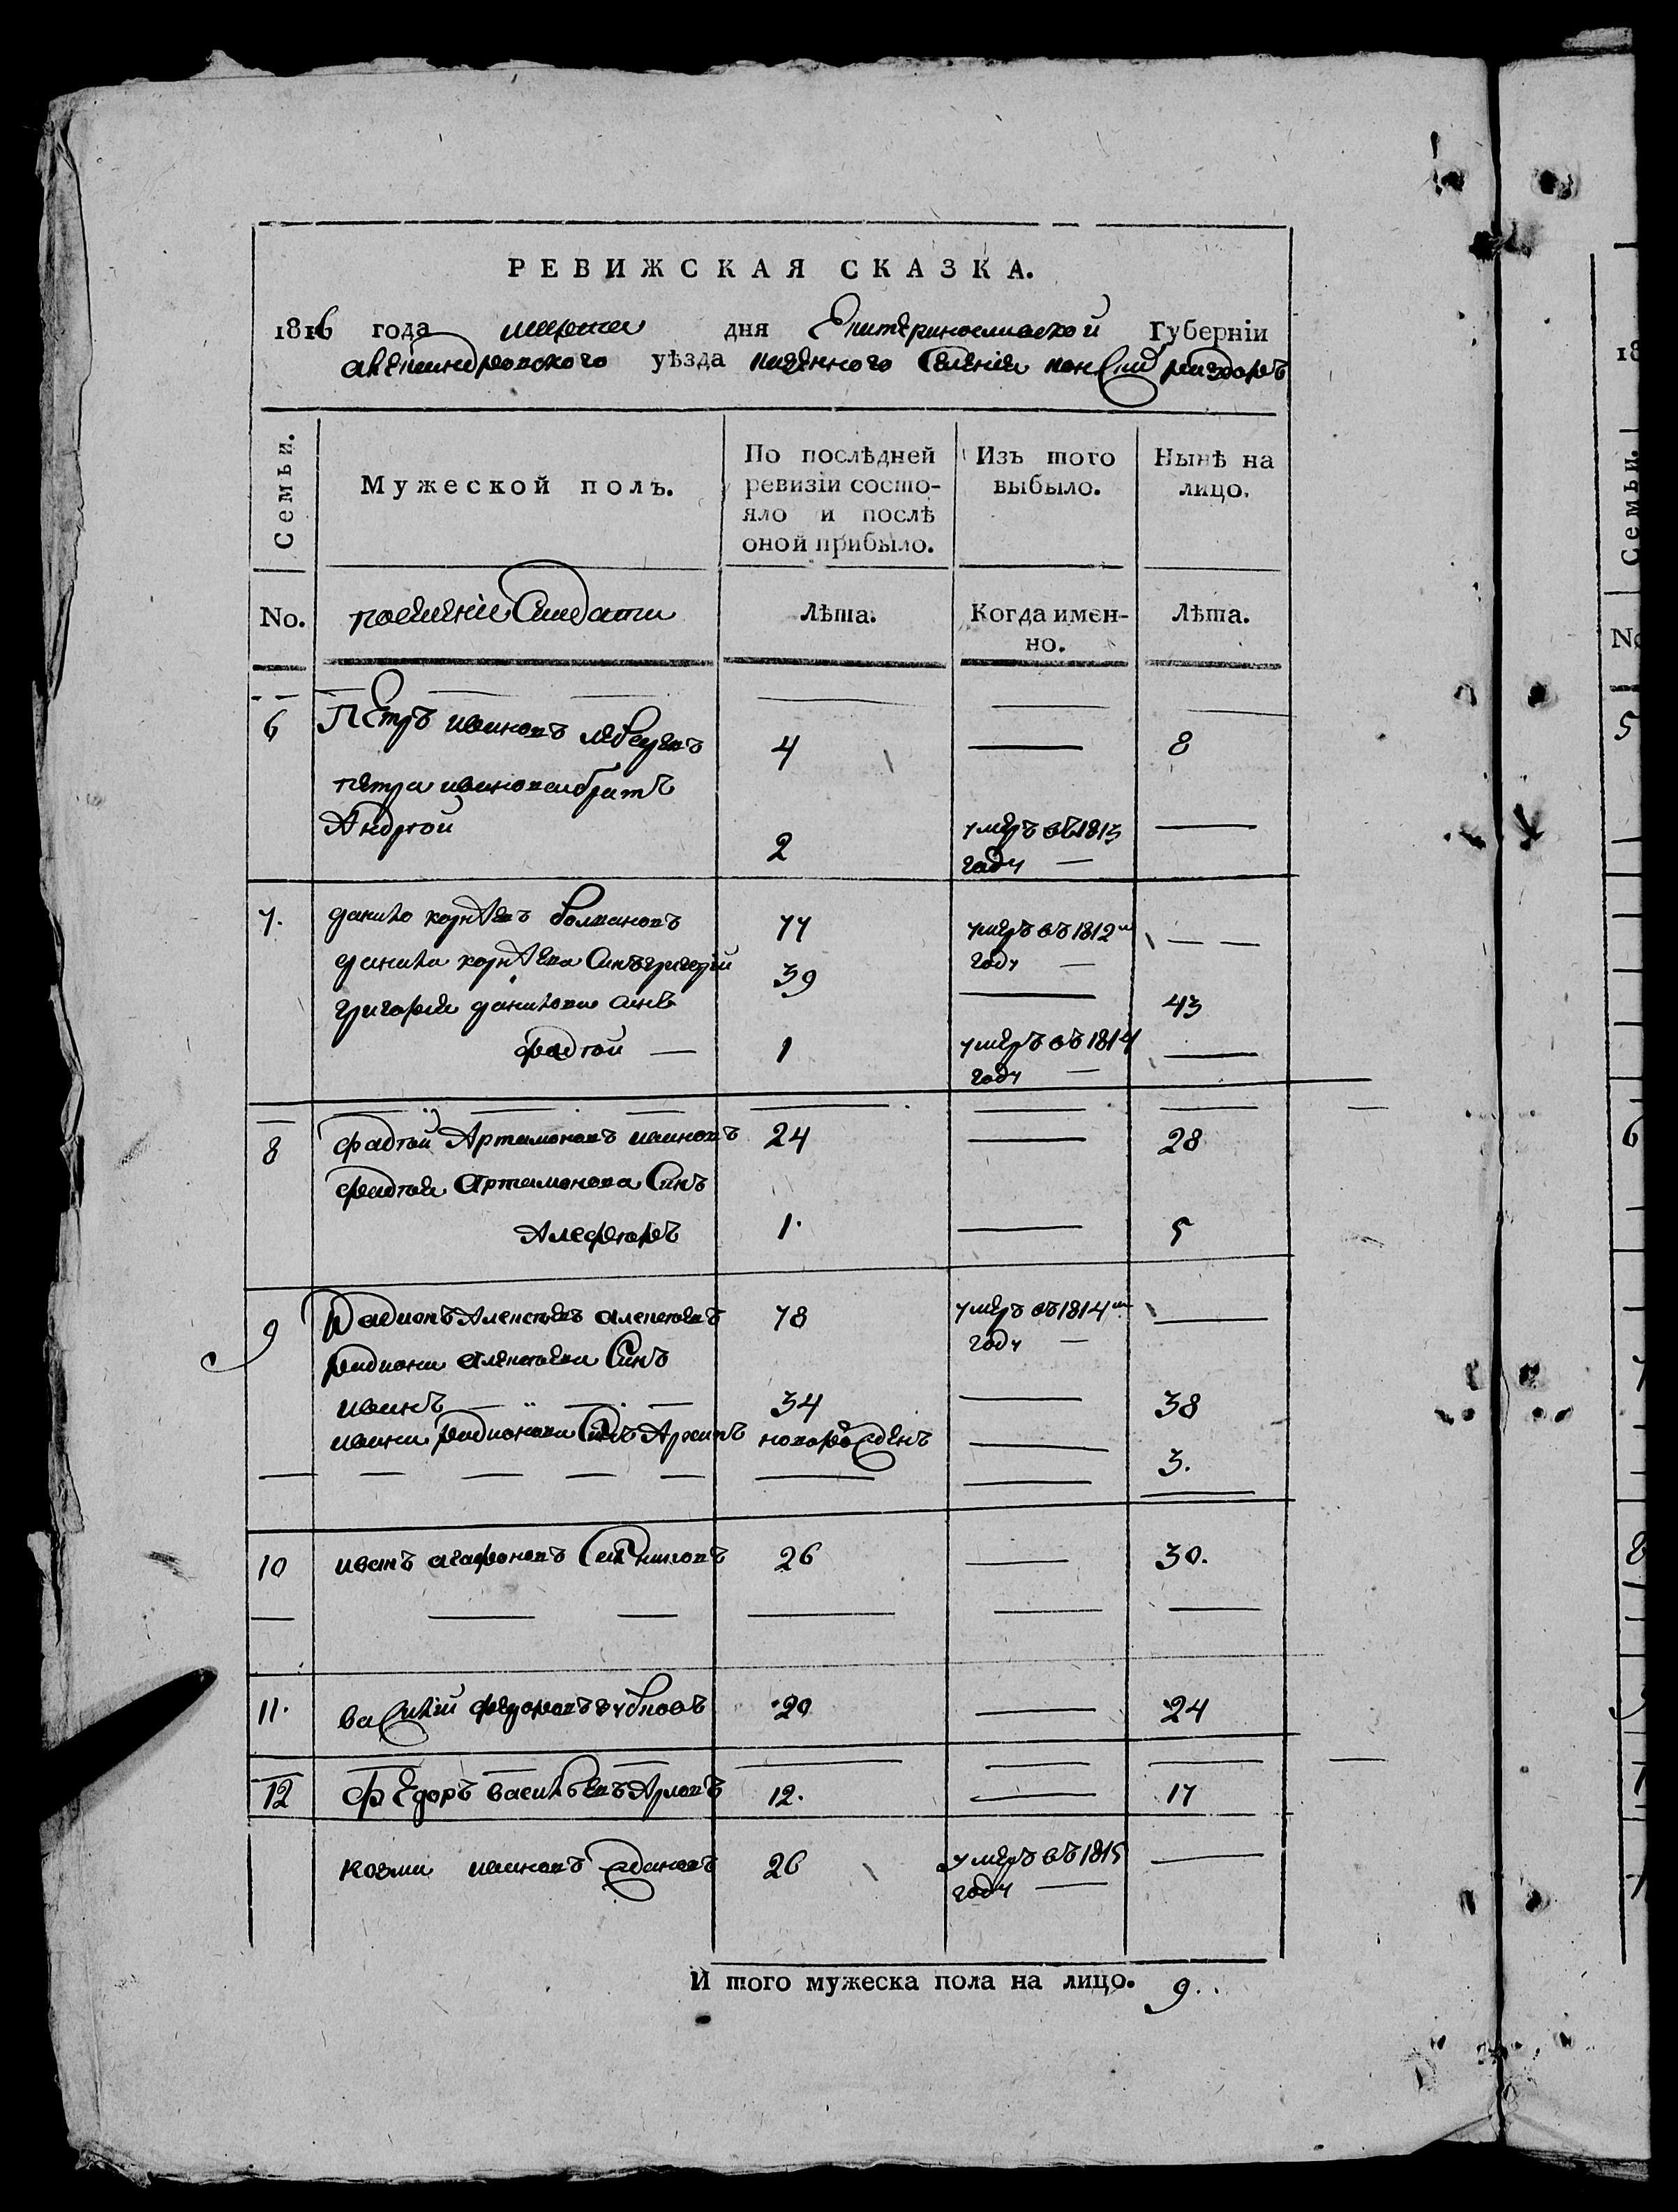 РЕВИЖСКАЯ СКАЗКА.
1816 года марта дня Екатеринославской Губерніи
александровского уѣзда казенного Селенія конскихъ раздоръ
Семьи.
Мужеской полъ.
По послѣдней
ревизіи состо-
яло и послѣ
оной прибыло.
Изъ того
выбыло.
Нынѣ на
лицо.
No.
Лѣта.
Когда имен-
но.
Лѣта.
6 Петръ ивановъ 4 8
петра иванова братъ
Андрей 2 умеръ въ 1813
году
7. данило корнѣевъ болвановъ 77 умеръ въ 1812м
году
данила корнѣева Синъ григорій 39 43
григорія данилова синъ
фадей 1 умеръ въ 1814
году
8 фадей Артамоновъ ивановъ 24 28
фадея Артамонова Синъ
Алефтеръ 1. 5
9 Радионъ Алексѣевъ алексѣевъ 78 умеръ въ 1814м
году
радиона алексѣева Синъ
иванъ 34 38
ивана радионова Синъ Архипъ новорожденъ 3.
10 иванъ агафоновъ 26 30.
11. василій федоровъ зубковъ 20 24
12 Федоръ васильевъ 12. 17
козма ивановъ ждановъ 26 умеръ въ 1815
году
И того мужеска пола на лицо. 9.
18
Семьи.
No
5
6
7
8
9